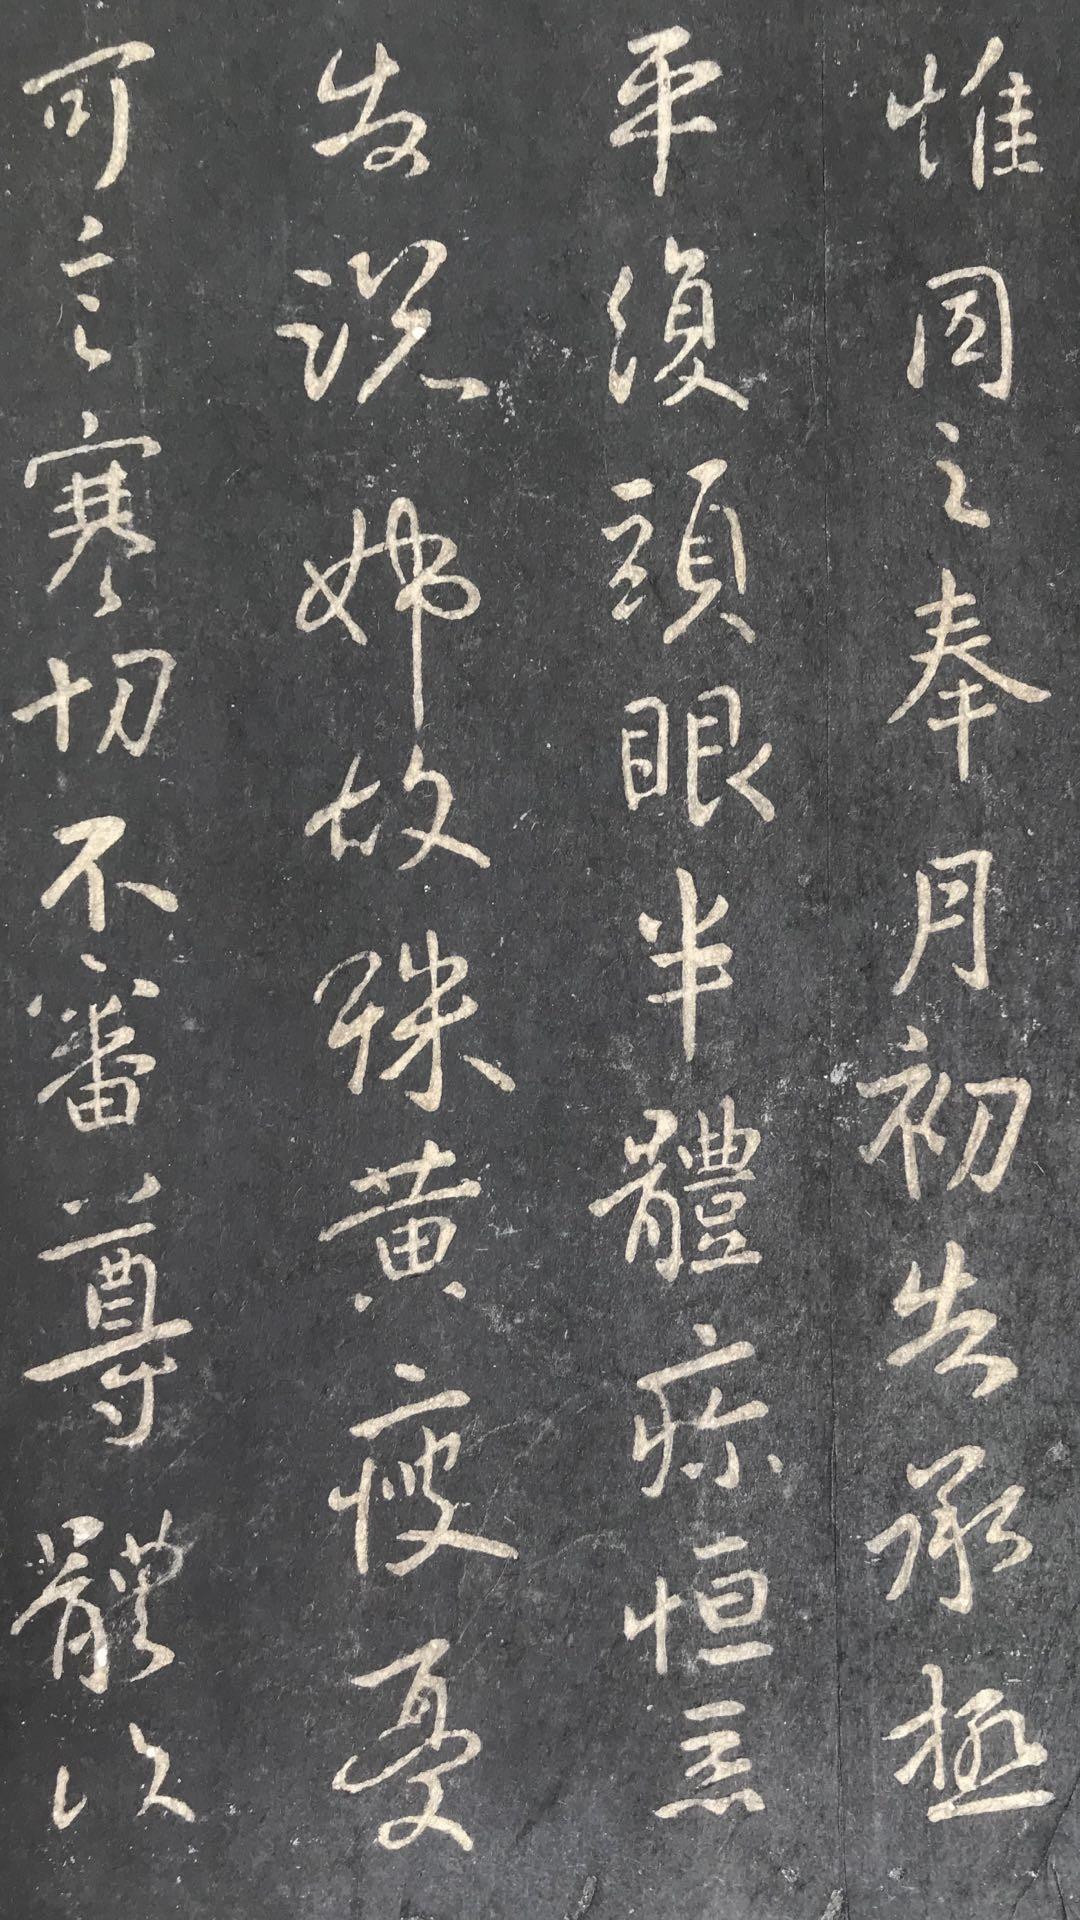 惟同之奉月初告承極
平復頭眼半體疼恒惡
友説姊故殊黄瘦憂
可言寒切不審尊體以